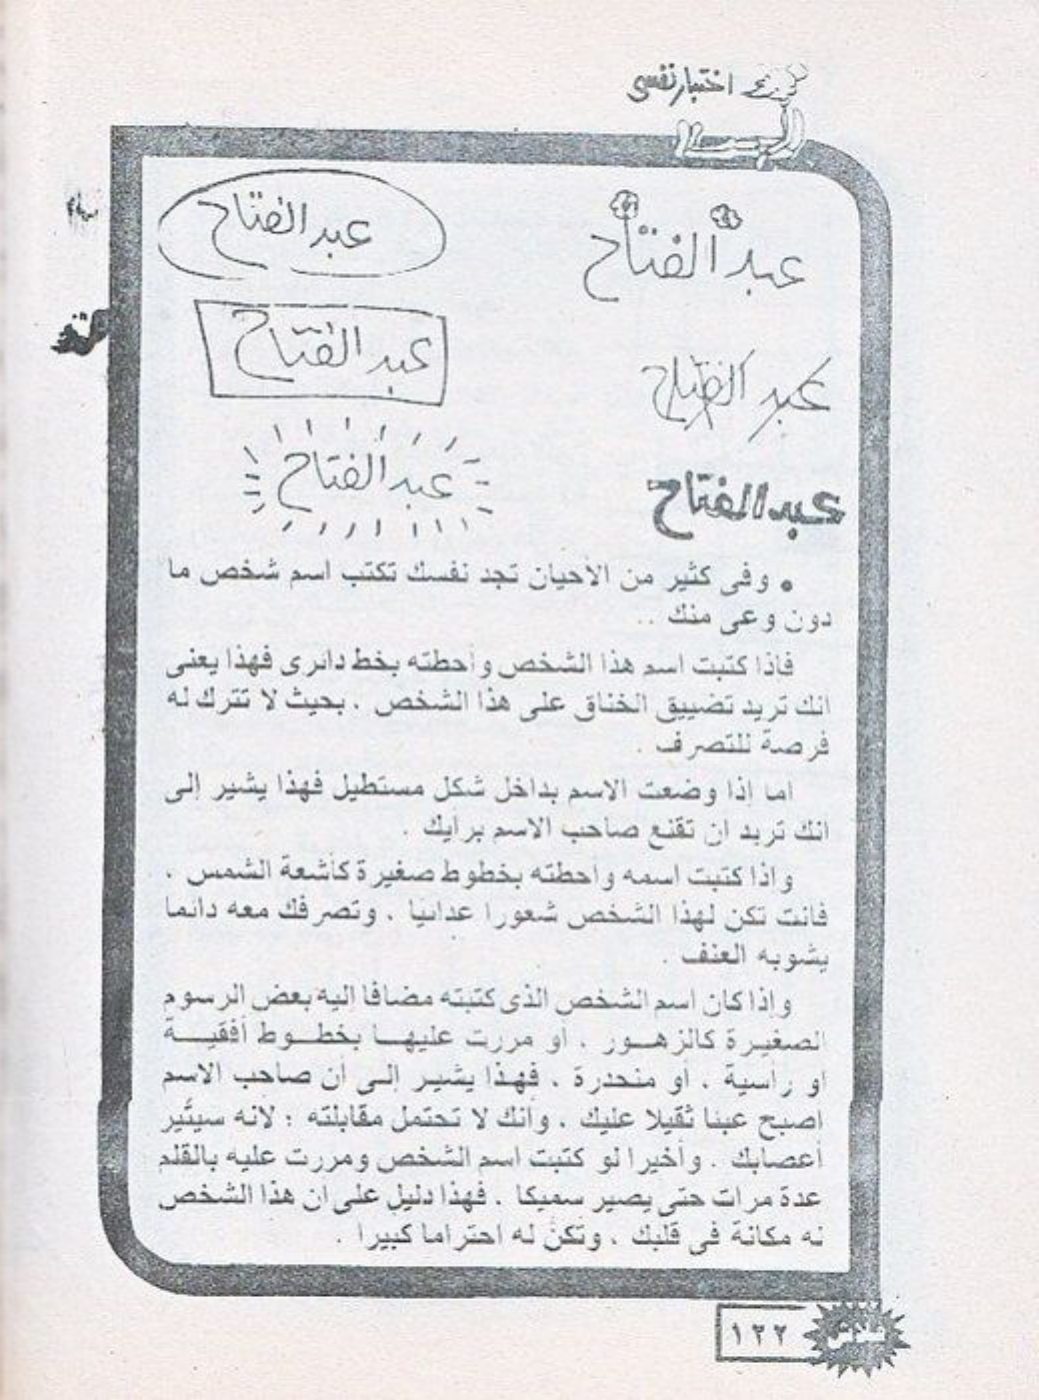 اختبار نفسى
عبد الفتاح
عبد الفتاح
عبد الفتاح
عبد الفتاح
عبد الفتاح
عبد الفتاح
• وفى كثير من الأحيان تجد نفسك تكتب اسم شخص ما
دون وعى منك ..
فإذا كتبت اسم هذا الشخص وأحطته بخط دائرى فهذا يعنى
انك تريد تضييق الخناق على هذا الشخص ، بحيث لا تترك له
فرصة للتصرف .
اما إذا وضعت الاسم بداخل شكل مستطيل فهذا يشير إلى
انك تريد ان تقنع صاحب الاسم برأيك .
وإذا كتبت اسمه وأحطته بخطوط صغيرة كأشعة الشمس ،
فانت تكن لهذا الشخص شعورا عدائيا ، وتصرفك معه دائما
يشوبه العنف .
وإذا كان اسم الشخص الذى كتبته مضافا إليه بعض الرسوم
الصغيرة كالزهور ، او مررت عليها بخطوط أفقية
او رأسية ، أو منحدرة ، فهذا يشير إلى أن صاحب الاسم
اصبح عبئا ثقيلا عليك ، وأنك لا تحتمل مقابلته ؛ لأنه سيثير
أعصابك . وأخيرا لو كتبت اسم الشخص ومررت عليه بالقلم
عدة مرات حتى يصير سميكا ، فهذا دليل على أن هذا الشخص
له مكانة فى قلبك ، وتكنُّ له احتراما كبيرا .
١٢٢